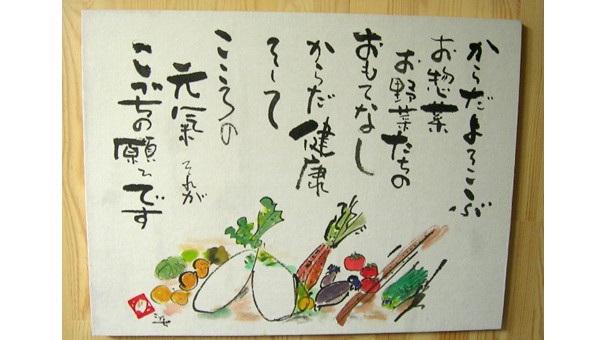 からだよろこぶ
お惣菜
お野菜たちの
おもてなし
からだ健康
そして
こころの
元氣 それが
こぶちの願いです